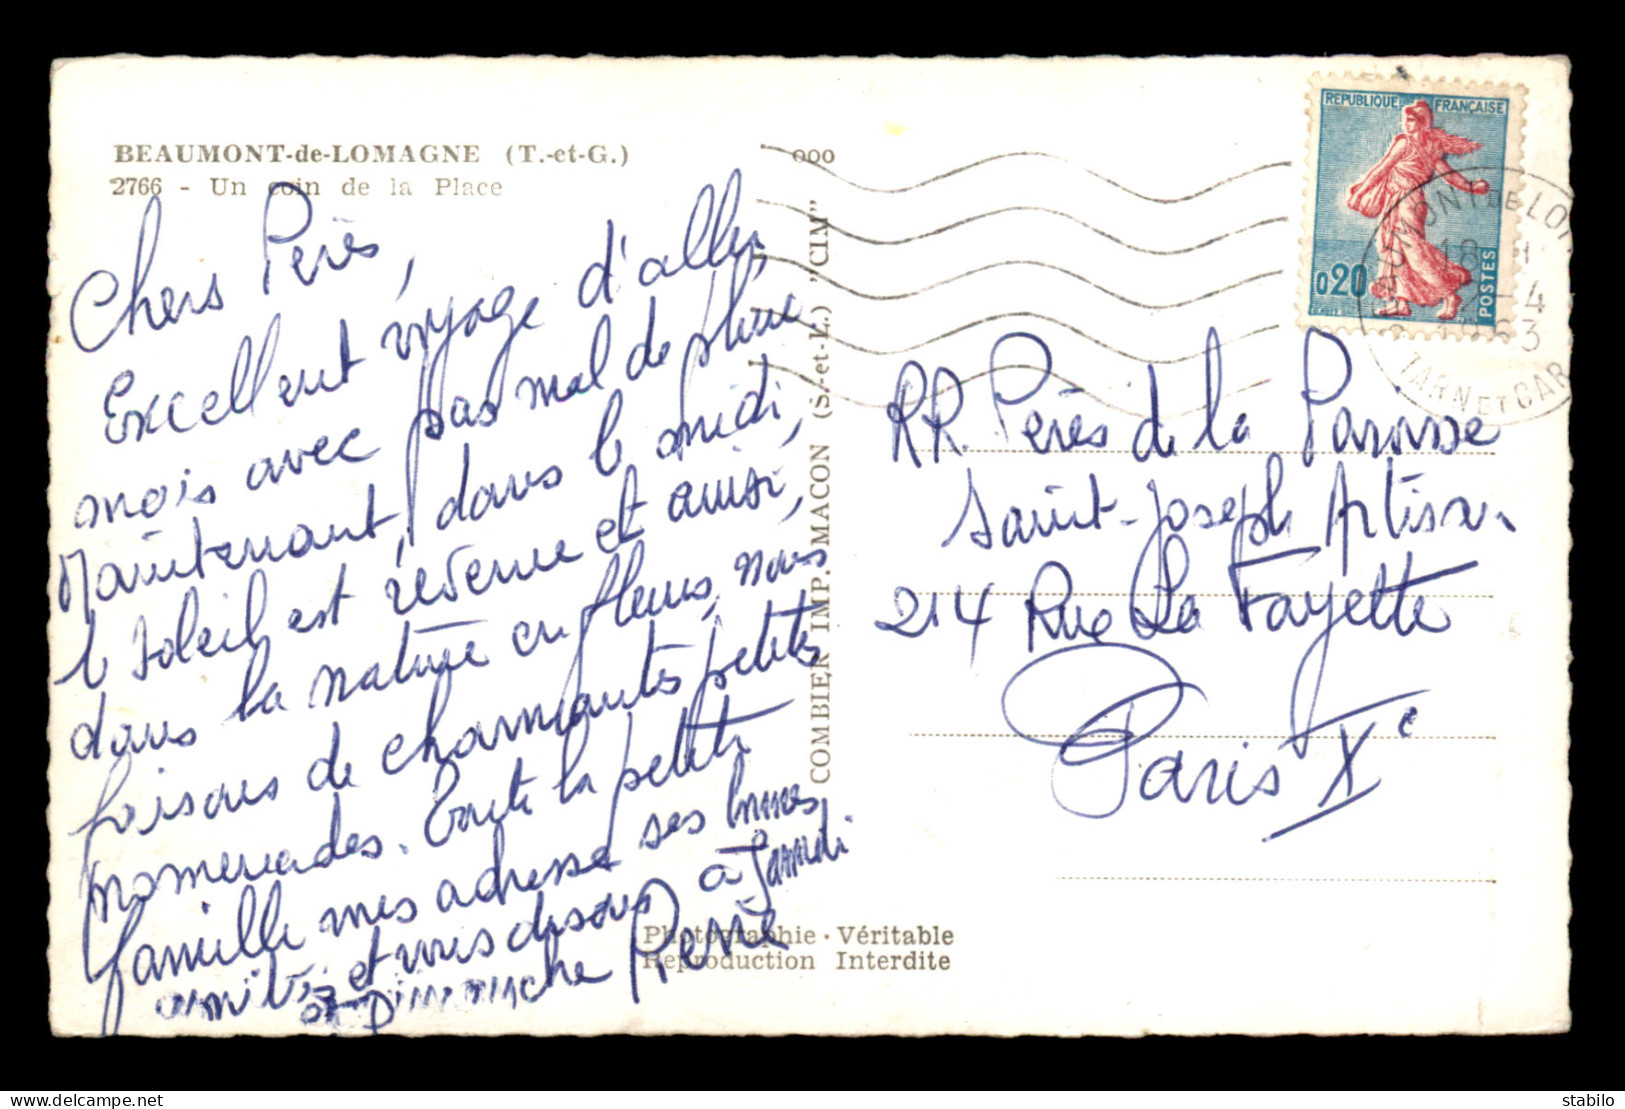 BEAUMONT-de-LOMAGNE (T.-et-G.)
2766 - Un coin de la Place
Chers Pères,
Excellent voyage d'aller,
mois avec pas mal de pluie
Maintenant, dans le midi,
le soleil est revenu et ainsi,
dans la nature en fleurs, nous
faisons de charmantes petites
promenades. Toute la petite
famille mes adresse ses bonnes
amitiés et vous disons à Samedi
et Dimanche René
ooo
COMBIER IMP. MACON (S.-et-L.) "CIM"
Photographie · Véritable
Reproduction Interdite
REPUBLIQUE FRANÇAISE
0,20
POSTES
BEAUMONT DE LOM
18 H
2-4
1963
TARN ET GAR
RR. Pères de la Paroisse
Saint-Joseph Artisan
214 Rue La Fayette
Paris Xe
stabilo